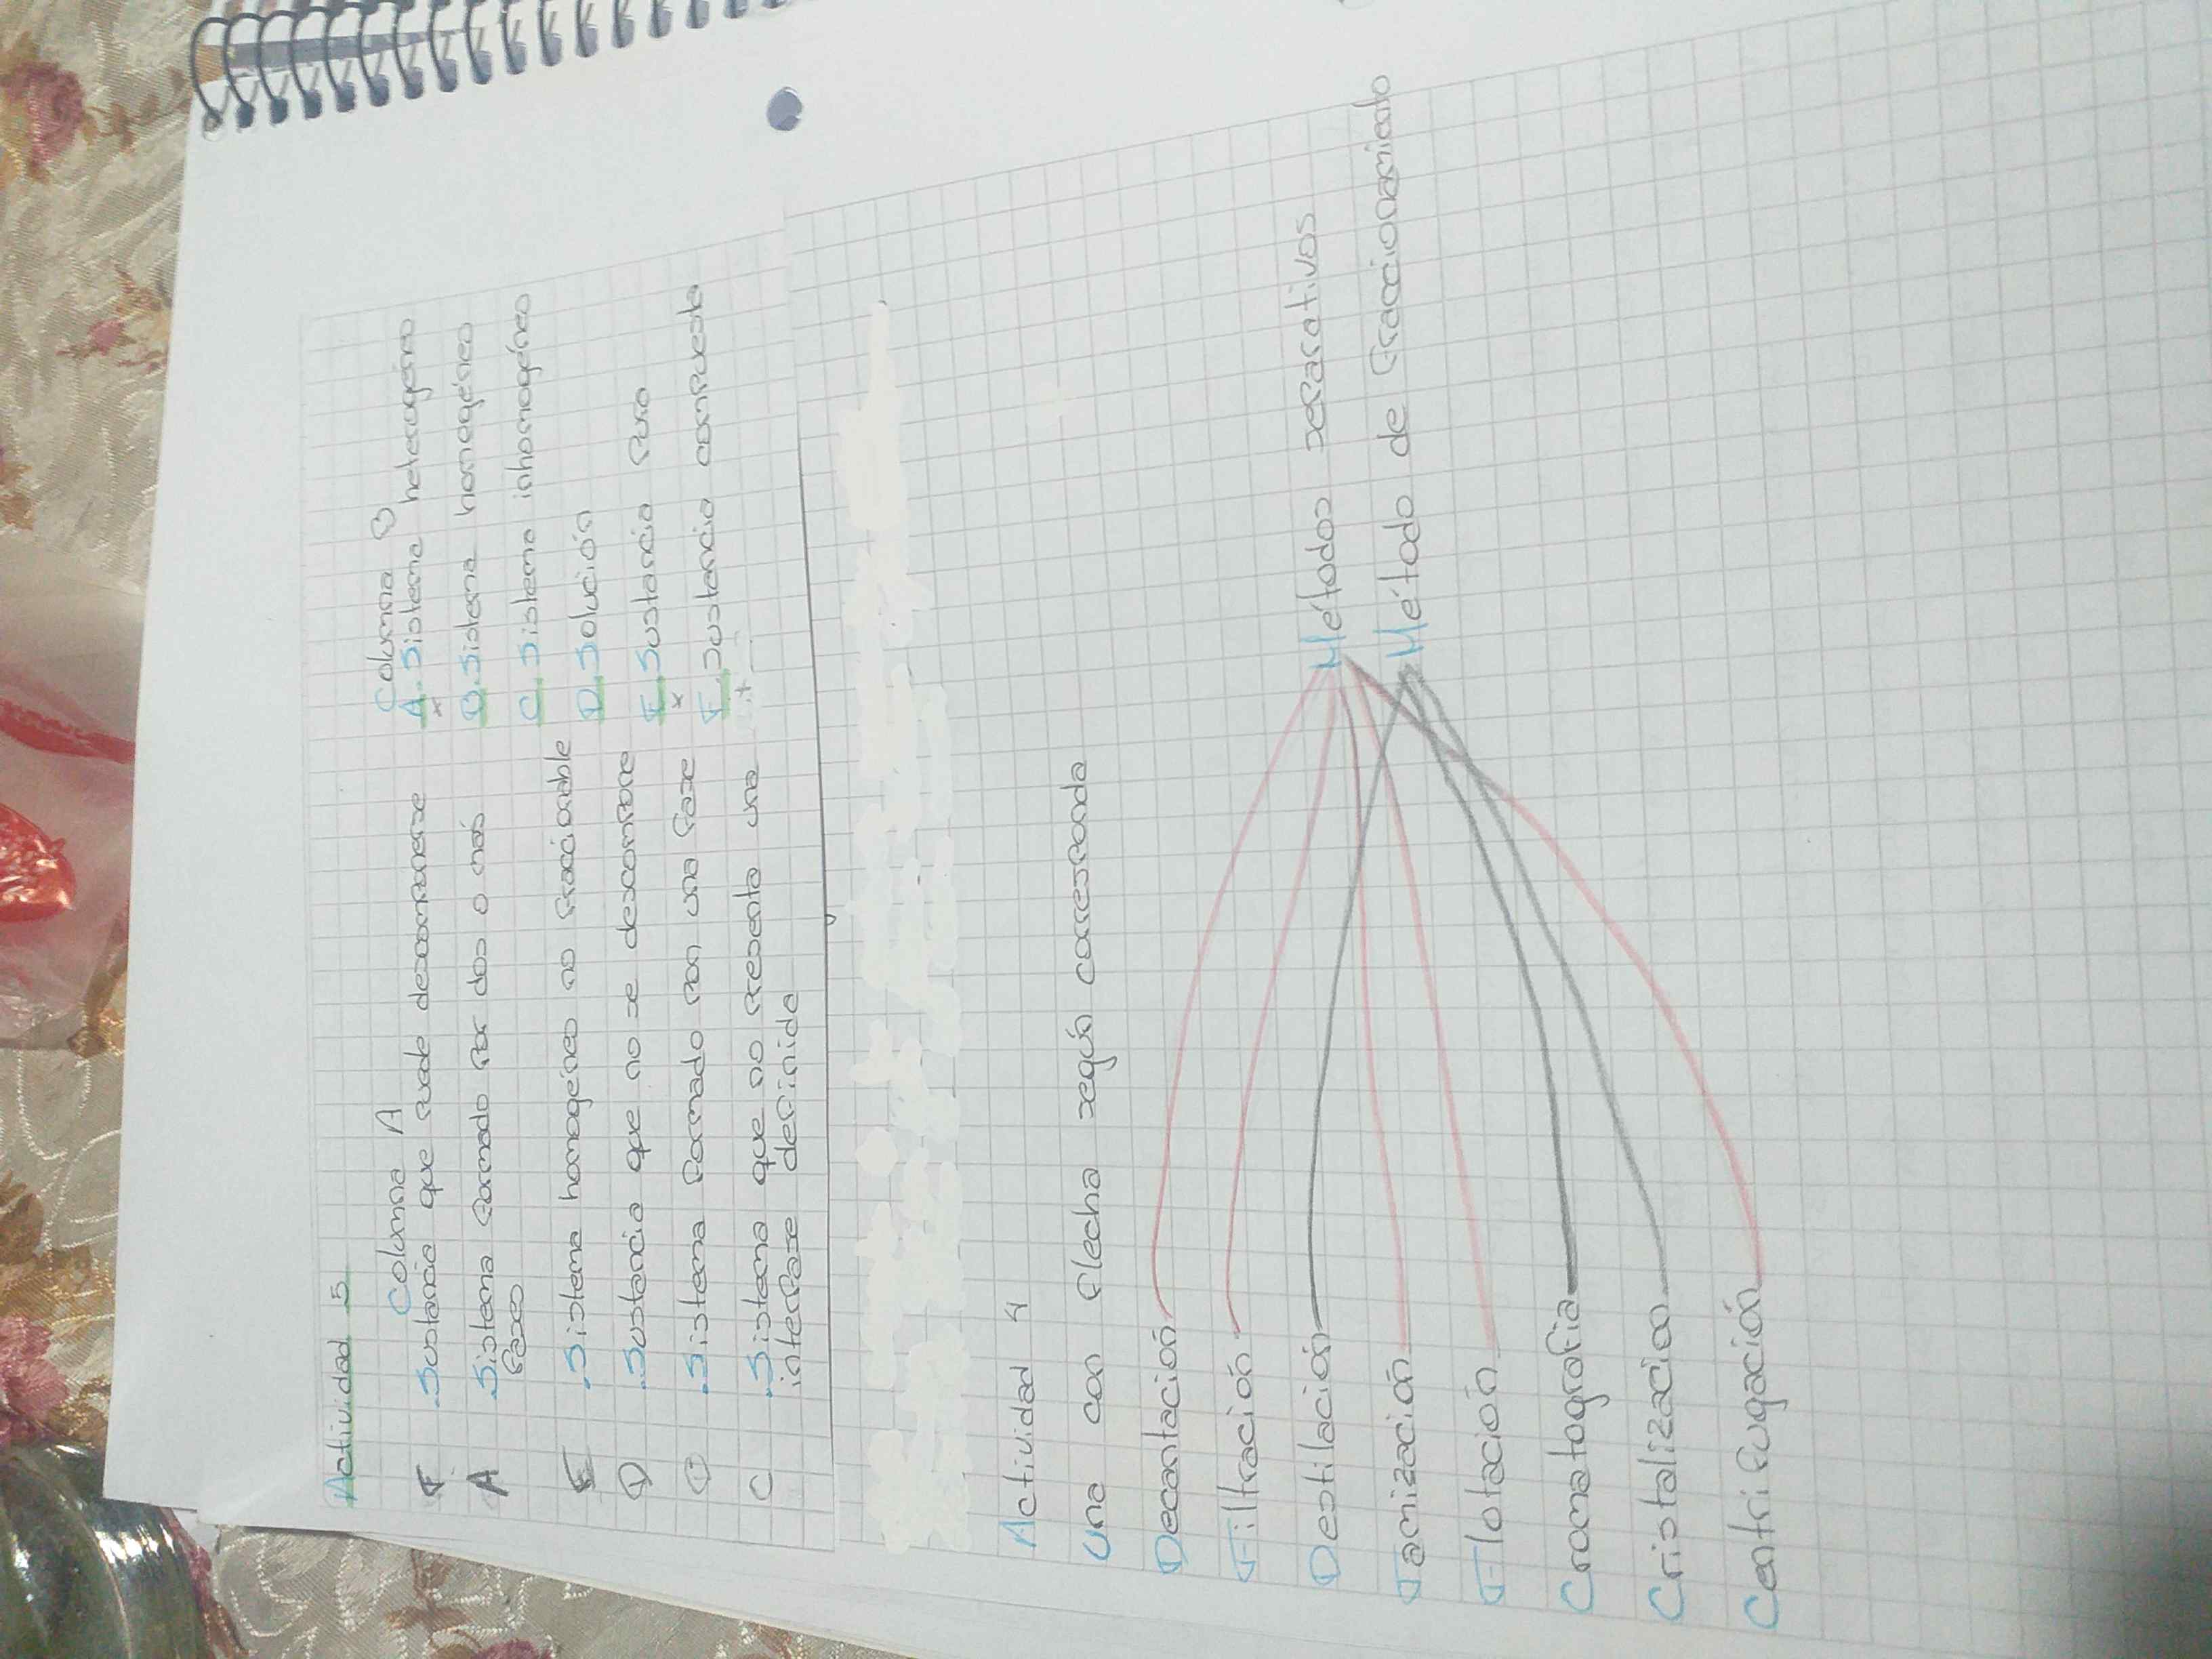 Actividad 5
Columna A
Columna B
F .Sustancia que puede descomponerse
A .Sistema formado por dos o más
fases
E .Sistema homogéneo no fraccionable
D .Sustancia que no se descompone
.Sistema formado por una fase
C .Sistema que no presenta una
interfase definida
A. Sistema heterogéneo
B. Sistema homogéneo
C. Sistema inhomogéneo
D. Solución
E. Sustancia pura
F. Sustancia compuesta
Actividad 4
Una con flecha según corresponda
Decantación
Filtración
Destilación
Tamización
Flotación
Cromatografía
Cristalizacion
Centrifugación
Métodos separativos
Método de fraccionamiento